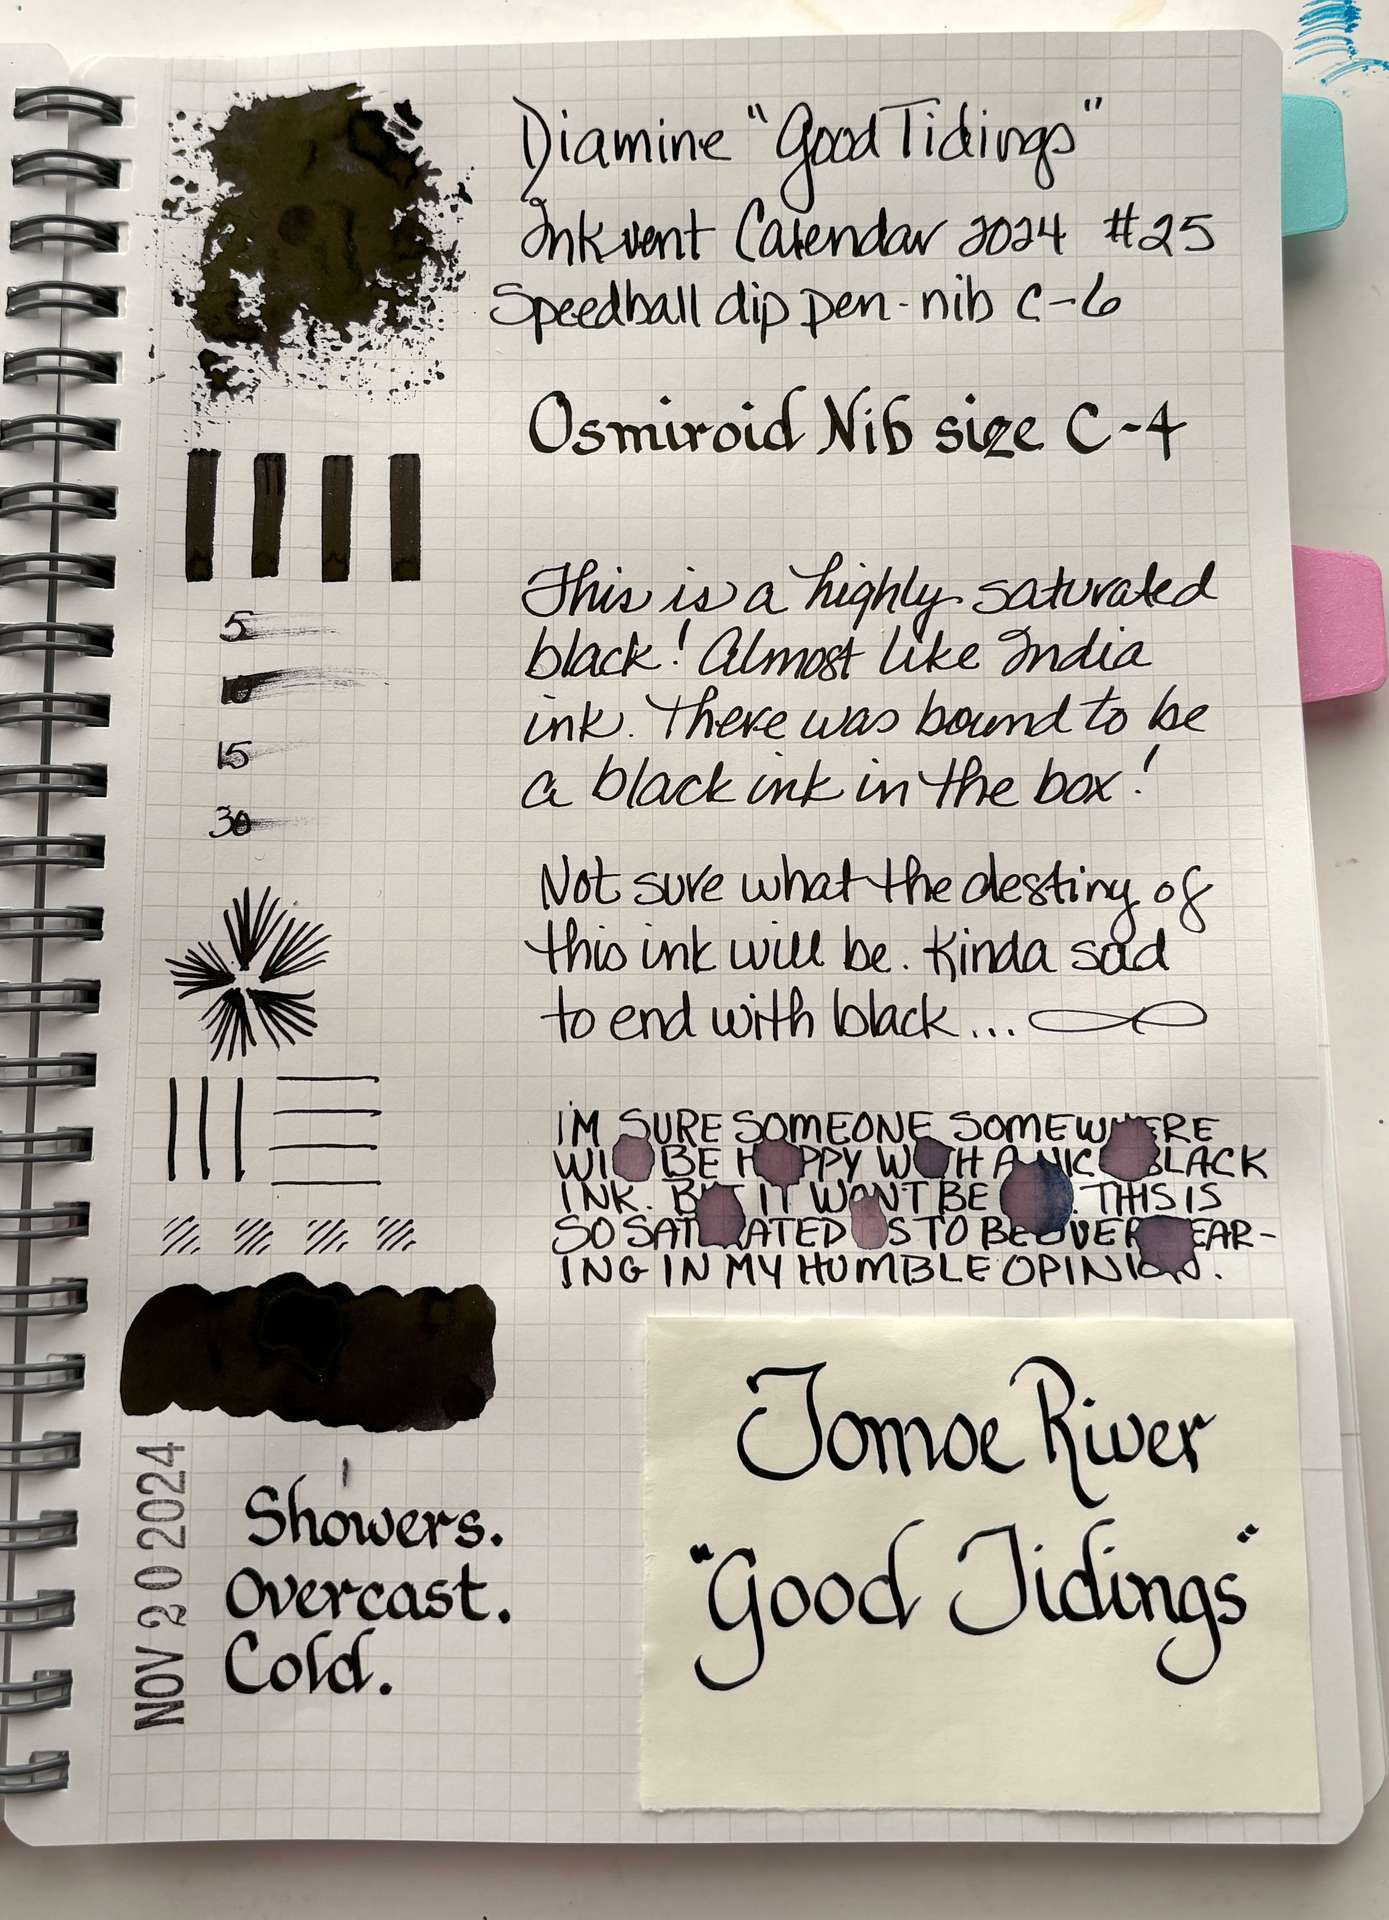 Diamine "Good Tidings"
Inkvent Calendar 2024 #25
Speedball dip pen - nib C-6
Osmiroid Nib size C-4
This is a highly saturated
black! Almost like India
ink. There was bound to be
a black ink in the box!
5
10
15
30
Not sure what the destiny of
this ink will be. Kinda sad
to end with black...
I'M SURE SOMEONE SOMEWHERE
WILL BE HAPPY WITH A NICE BLACK
INK. BUT IT WONT BE . THIS IS
SO SATURATED AS TO BE OVERBEAR-
ING IN MY HUMBLE OPINION.
NOV 20 2024
Showers.
Overcast.
Cold.
Tomoe River
"Good Tidings"